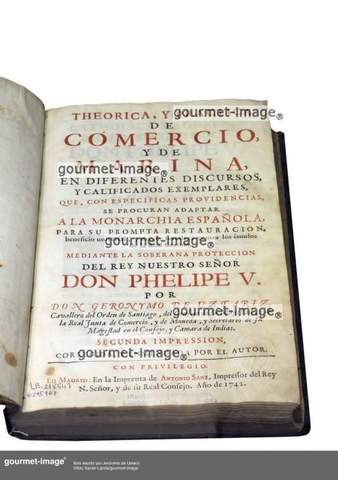 THEORICA, Y
gourmet-image®
DE
COMERCIO,
Y DE
gourmet-image®
MARINA,
EN DIFERENTES DISCURSOS,
Y CALIFICADOS EXEMPLARES,
QUE, CON ESPECIFICAS PROVIDENCIAS,
SE PROCURAN ADAPTAR
A LA MONARCHIA ESPAÑOLA,
PARA SU PROMPTA RESTAURACION,
beneficio
gourmet-image®
los émulos
MEDIANTE LA SOBERANA PROTECCION
DEL REY NUESTRO SEÑOR
DON PHELIPE V.
POR
DON GERONYMO DE UZTARIZ,
gourmet-image®
Cavallero del Orden de Santiago, del
la Real Junta de Comercio, y de Moneda, y Secretario de su
Magestad en el Consejo, y Camara de Indias.
SEGUNDA IMPRESSION,
gourmet-image®
POR EL AUTOR.
CON PRIVILEGIO.
EN MADRID: En la Imprenta de ANTONIO SANZ, Impressor del Rey
N. Señor, y de su Real Consejo. Año de 1742.
gourmet-image®
libro escrito por Jerónimo de Uztariz
Fotos: Xavier Landa/gourmet-image